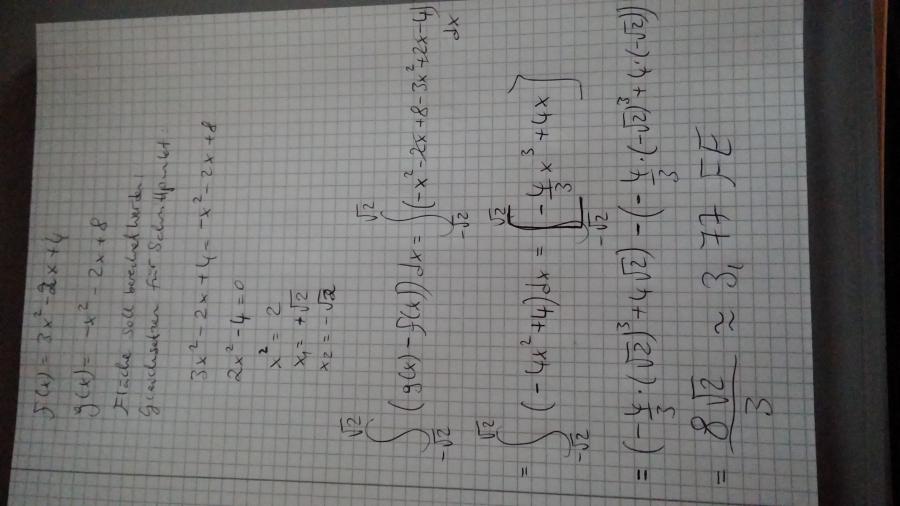 f(x) = 3x² - 2x + 4
g(x) = -x² - 2x + 8
Fläche soll berechnet werden!
Gleichsetzen für Schnittpunkt:
3x² - 2x + 4 = -x² - 2x + 8
2x² - 4 = 0
x² = 2
x₁ = +√2
x₂ = -√2
∫_{-√2}^{√2} (g(x) - f(x)) dx = ∫_{-√2}^{√2} (-x² - 2x + 8 - 3x² + 2x - 4) dx
= ∫_{-√2}^{√2} (-4x² + 4) dx = [-4/3 x³ + 4x]_{-√2}^{√2}
= (-4/3 · (√2)³ + 4√2) - (-4/3 · (-√2)³ + 4 · (-√2))
= 8√2/3 ≈ 3,77 FE